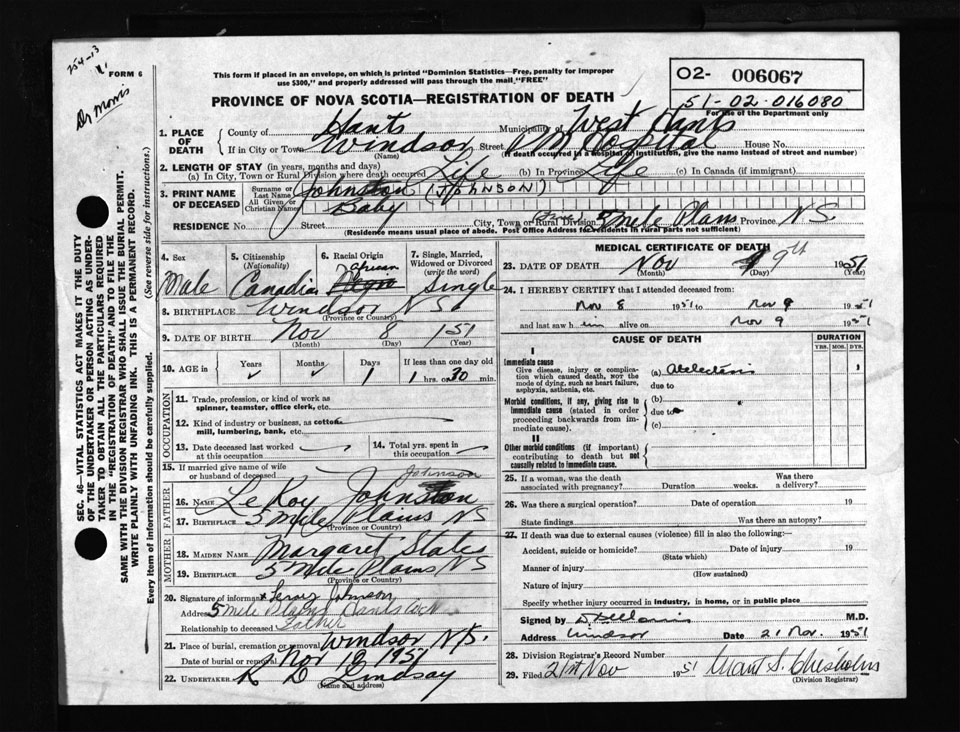 254-13
FORM 6
Dr Morris
This form if placed in an envelope, on which is printed "Dominion Statistics—Free, penalty for improper
use $300," and properly addressed will pass through the mail "FREE"
PROVINCE OF NOVA SCOTIA—REGISTRATION OF DEATH
O2- 006067
51-02-016080
For use of the Department only
1. PLACE OF DEATH
County of Hants Municipality of West Hants
If in City or Town Windsor Street Hospital House No.
(Name) (If death occurred in a hospital or institution, give the name instead of street and number)
2. LENGTH OF STAY (in years, months and days)
(a) In City, Town or Rural Division where death occurred Life (b) In Province Life (c) In Canada (if immigrant)
3. PRINT NAME OF DECEASED
Surname or Last Name Johnston (JOHNSON)
All Given or Christian Names Baby
RESIDENCE No. Street City, Town or Rural Division 5 Mile Plans Province N.S.
(Residence means usual place of abode. Post Office Address for residents in rural parts not sufficient)
4. Sex Male
5. Citizenship (Nationality) Canadian
6. Racial Origin African Negro
7. Single, Married, Widowed or Divorced (write the word) Single
8. BIRTHPLACE Windsor N S
(Province or Country)
9. DATE OF BIRTH Nov 8 1951
(Month) (Day) (Year)
10. AGE in Years Months Days 1 If less than one day old 1 hrs. or 30 min.
OCCUPATION
11. Trade, profession, or kind of work as
spinner, teamster, office clerk, etc.
12. Kind of industry or business, as cotton
mill, lumbering, bank, etc.
13. Date deceased last worked at this occupation
14. Total yrs. spent in this occupation
15. If married give name of wife
or husband of deceased
Johnson
FATHER
16. NAME LeRoy Johnston
17. BIRTHPLACE 5 Mile Plains NS
(Province or Country)
MOTHER
18. MAIDEN NAME Margaret States
19. BIRTHPLACE 5 Mile Plains NS
(Province or Country)
20. Signature of informant x Leroy Johnson
Address 5 mile Plains Hants Co
Relationship to deceased Father
21. Place of burial, cremation or removal Windsor N.S.
Date of burial or removal Nov 1951
22. UNDERTAKER R D Lindsay
(Name and address)
MEDICAL CERTIFICATE OF DEATH
23. DATE OF DEATH Nov 9th 1951
(Month) (Day) (Year)
24. I HEREBY CERTIFY that I attended deceased from:
Nov 8 1951 to Nov 9 1951
and last saw him alive on Nov 9 1951
CAUSE OF DEATH
DURATION
YRS. MOS. DYS.
I
Immediate cause
Give disease, injury or complication which caused death, NOT the mode of dying, such as heart failure, asphyxia, asthenia, etc.
(a) Atelectasis 1
due to
Morbid conditions, if any, giving rise to immediate cause (stated in order proceeding backwards from immediate cause).
(b)
due to
(c)
II
Other morbid conditions (if important) contributing to death but not causally related to immediate cause.
25. If a woman, was the death associated with pregnancy? Duration weeks. Was there a delivery?
26. Was there a surgical operation? Date of operation 19
State findings Was there an autopsy?
27. If death was due to external causes (violence) fill in also the following:
Accident, suicide or homicide? Date of injury 19
(State which)
Manner of injury
(How sustained)
Nature of injury
Specify whether injury occurred in industry, in home, or in public place
Signed by Morris M.D.
Address Windsor Date 21 Nov. 1951
28. Division Registrar's Record Number
29. Filed 21st Nov 1951 S. Chisholm
(Division Registrar)
SEC. 46—VITAL STATISTICS ACT MAKES IT THE DUTY
OF THE UNDERTAKER OR PERSON ACTING AS UNDER-
TAKER TO OBTAIN ALL THE PARTICULARS REQUIRED
IN THE "REGISTRATION OF DEATH" AND TO FILE THE
SAME WITH THE DIVISION REGISTRAR WHO SHALL ISSUE THE BURIAL PERMIT.
WRITE PLAINLY WITH UNFADING INK. THIS IS A PERMANENT RECORD.
Every item of information should be carefully supplied. (See reverse side for instructions.)